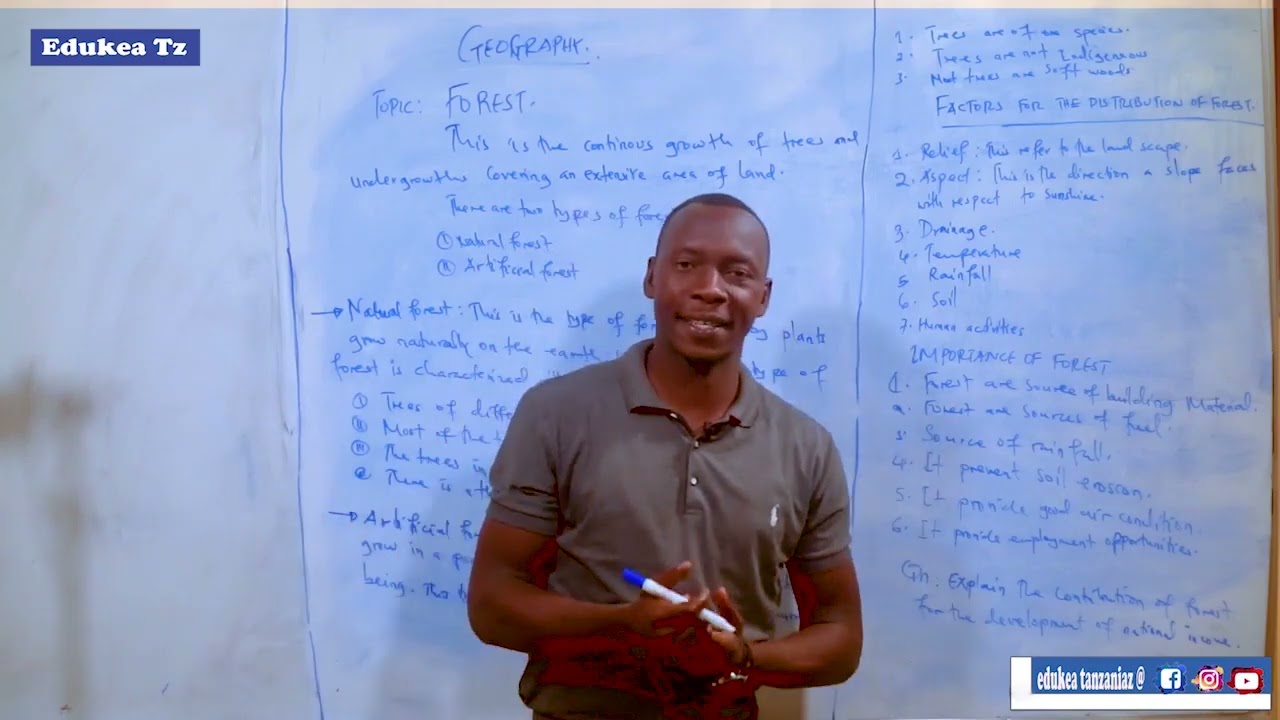 Edukea Tz
GEOGRAPHY.
TOPIC: FOREST.
This is the continous growth of trees and
undergrowths covering an extensive area of land.
There are two types of fore
(I) Natural forest
(II) Artificial forest
→ Natural forest: This is the type of for plants
grow naturally on the earth
forest is characterized type of
(I) Trees of diff
(II) Most of the
(III) The trees in
There is
→ Artificial fo
grow in a
being. This
1. Trees are of one species.
2. Trees are not Indigenous
3. Most trees are soft woods
FACTORS FOR THE DISTRIBUTION OF FOREST.
1. Relief: This refer to the land scape.
2. Aspect: This is the direction a slope faces
with respect to sunshine.
3. Drainage.
4. Temperature
5 Rainfall
6. Soil
7. Human activities
IMPORTANCE OF FOREST
1. Forest are source of building Material.
2. Forest are sources of fuel.
3. Source of rainfall.
4. It prevent soil erosion.
5. It provide good air condition.
6. It provide employment opportunities.
Qn. Explain the contribution of forest
for the development of national income.
edukea tanzaniaz @